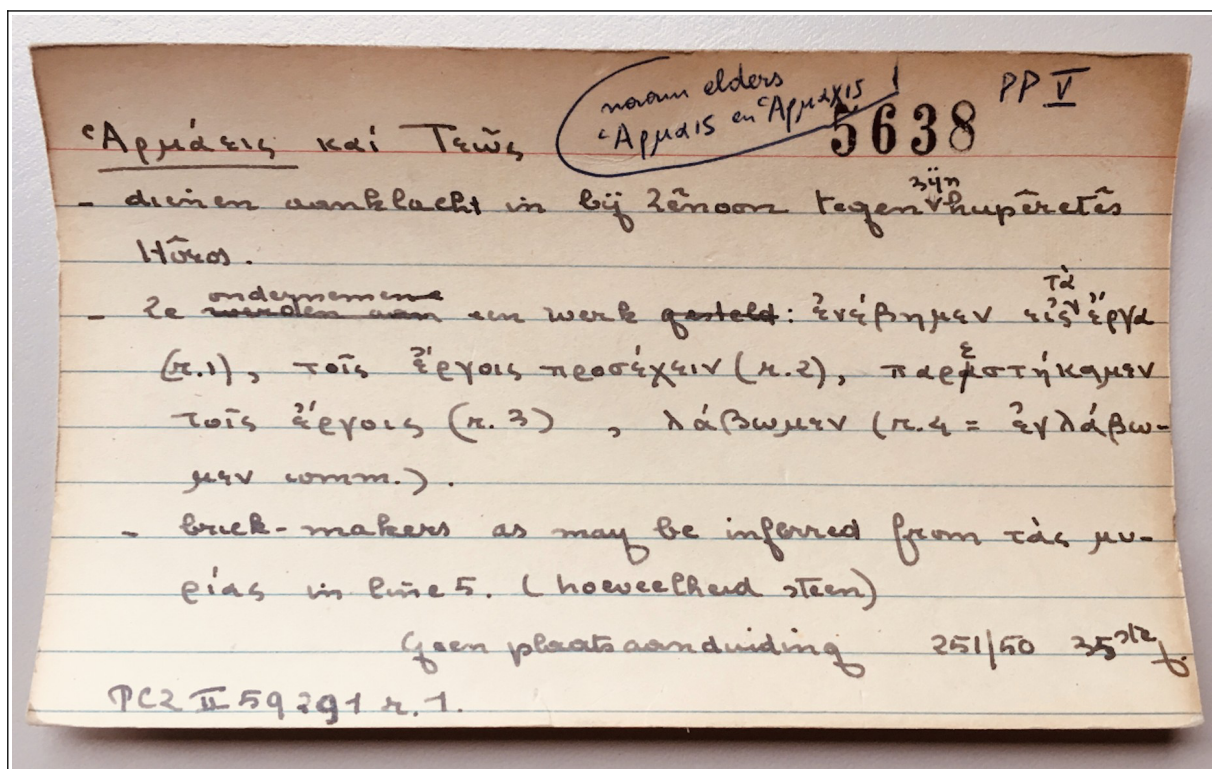 naam elders
Ἁρμαις en Ἁρμαχις
5638
PP V
Ἁρμάεις καί Τεῶς
- dienen aanklacht in bij Zēnoon tegen zijn hupēretēs
Hōros.
- Ze ondernemen werden aan een werk gesteld: ἐνέβημεν εἰς τὰ ἔργα
(r.1), τοῖς ἔργοις προσέχειν (r.2), παρεστήκαμεν
τοῖς ἔργοις (r.3), λάβωμεν (r.4 = ἐγλάβω-
μεν comm.).
- brick-makers as may be inferred from τὰς μυ-
ρίας in line 5. (hoeveelheid steen)
Geen plaatsaanduiding 251/50
PCZ II 59291 r.1.